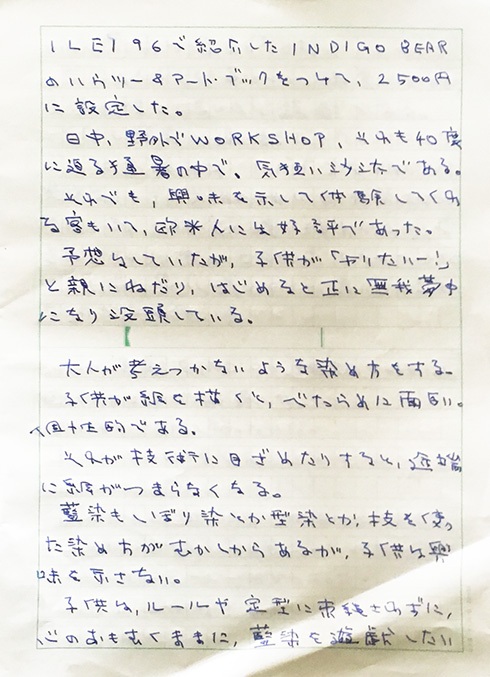 ILE196で紹介したINDIGO BEAR
のハウツー&アート・ブックをつけて、2500円
に設定した。
日中、野外でWORKSHOP、それも40度
に迫る猛暑の中で、気狂い沙汰である。
それでも、興味を示して体験してくれ
る客もいて、欧米人に好評であった。
予想していたが、子供が「ヤリたいー!」
と親にねだり、はじめると正に無我夢中
になり没頭している。
大人が考えつかないような染め方をする。
子供が絵を描くと、べたらめに面白い。
個性的である。
それが技術に目ざめたりすると、途端
に絵がつまらなくなる。
藍染もしぼり染とか型染とか、技を使っ
た染め方がむかしからあるが、子供は興
味を示さない。
子供は、ルールや定型に束縛されずに、
心のおもむくままに、藍染を遊戯したい